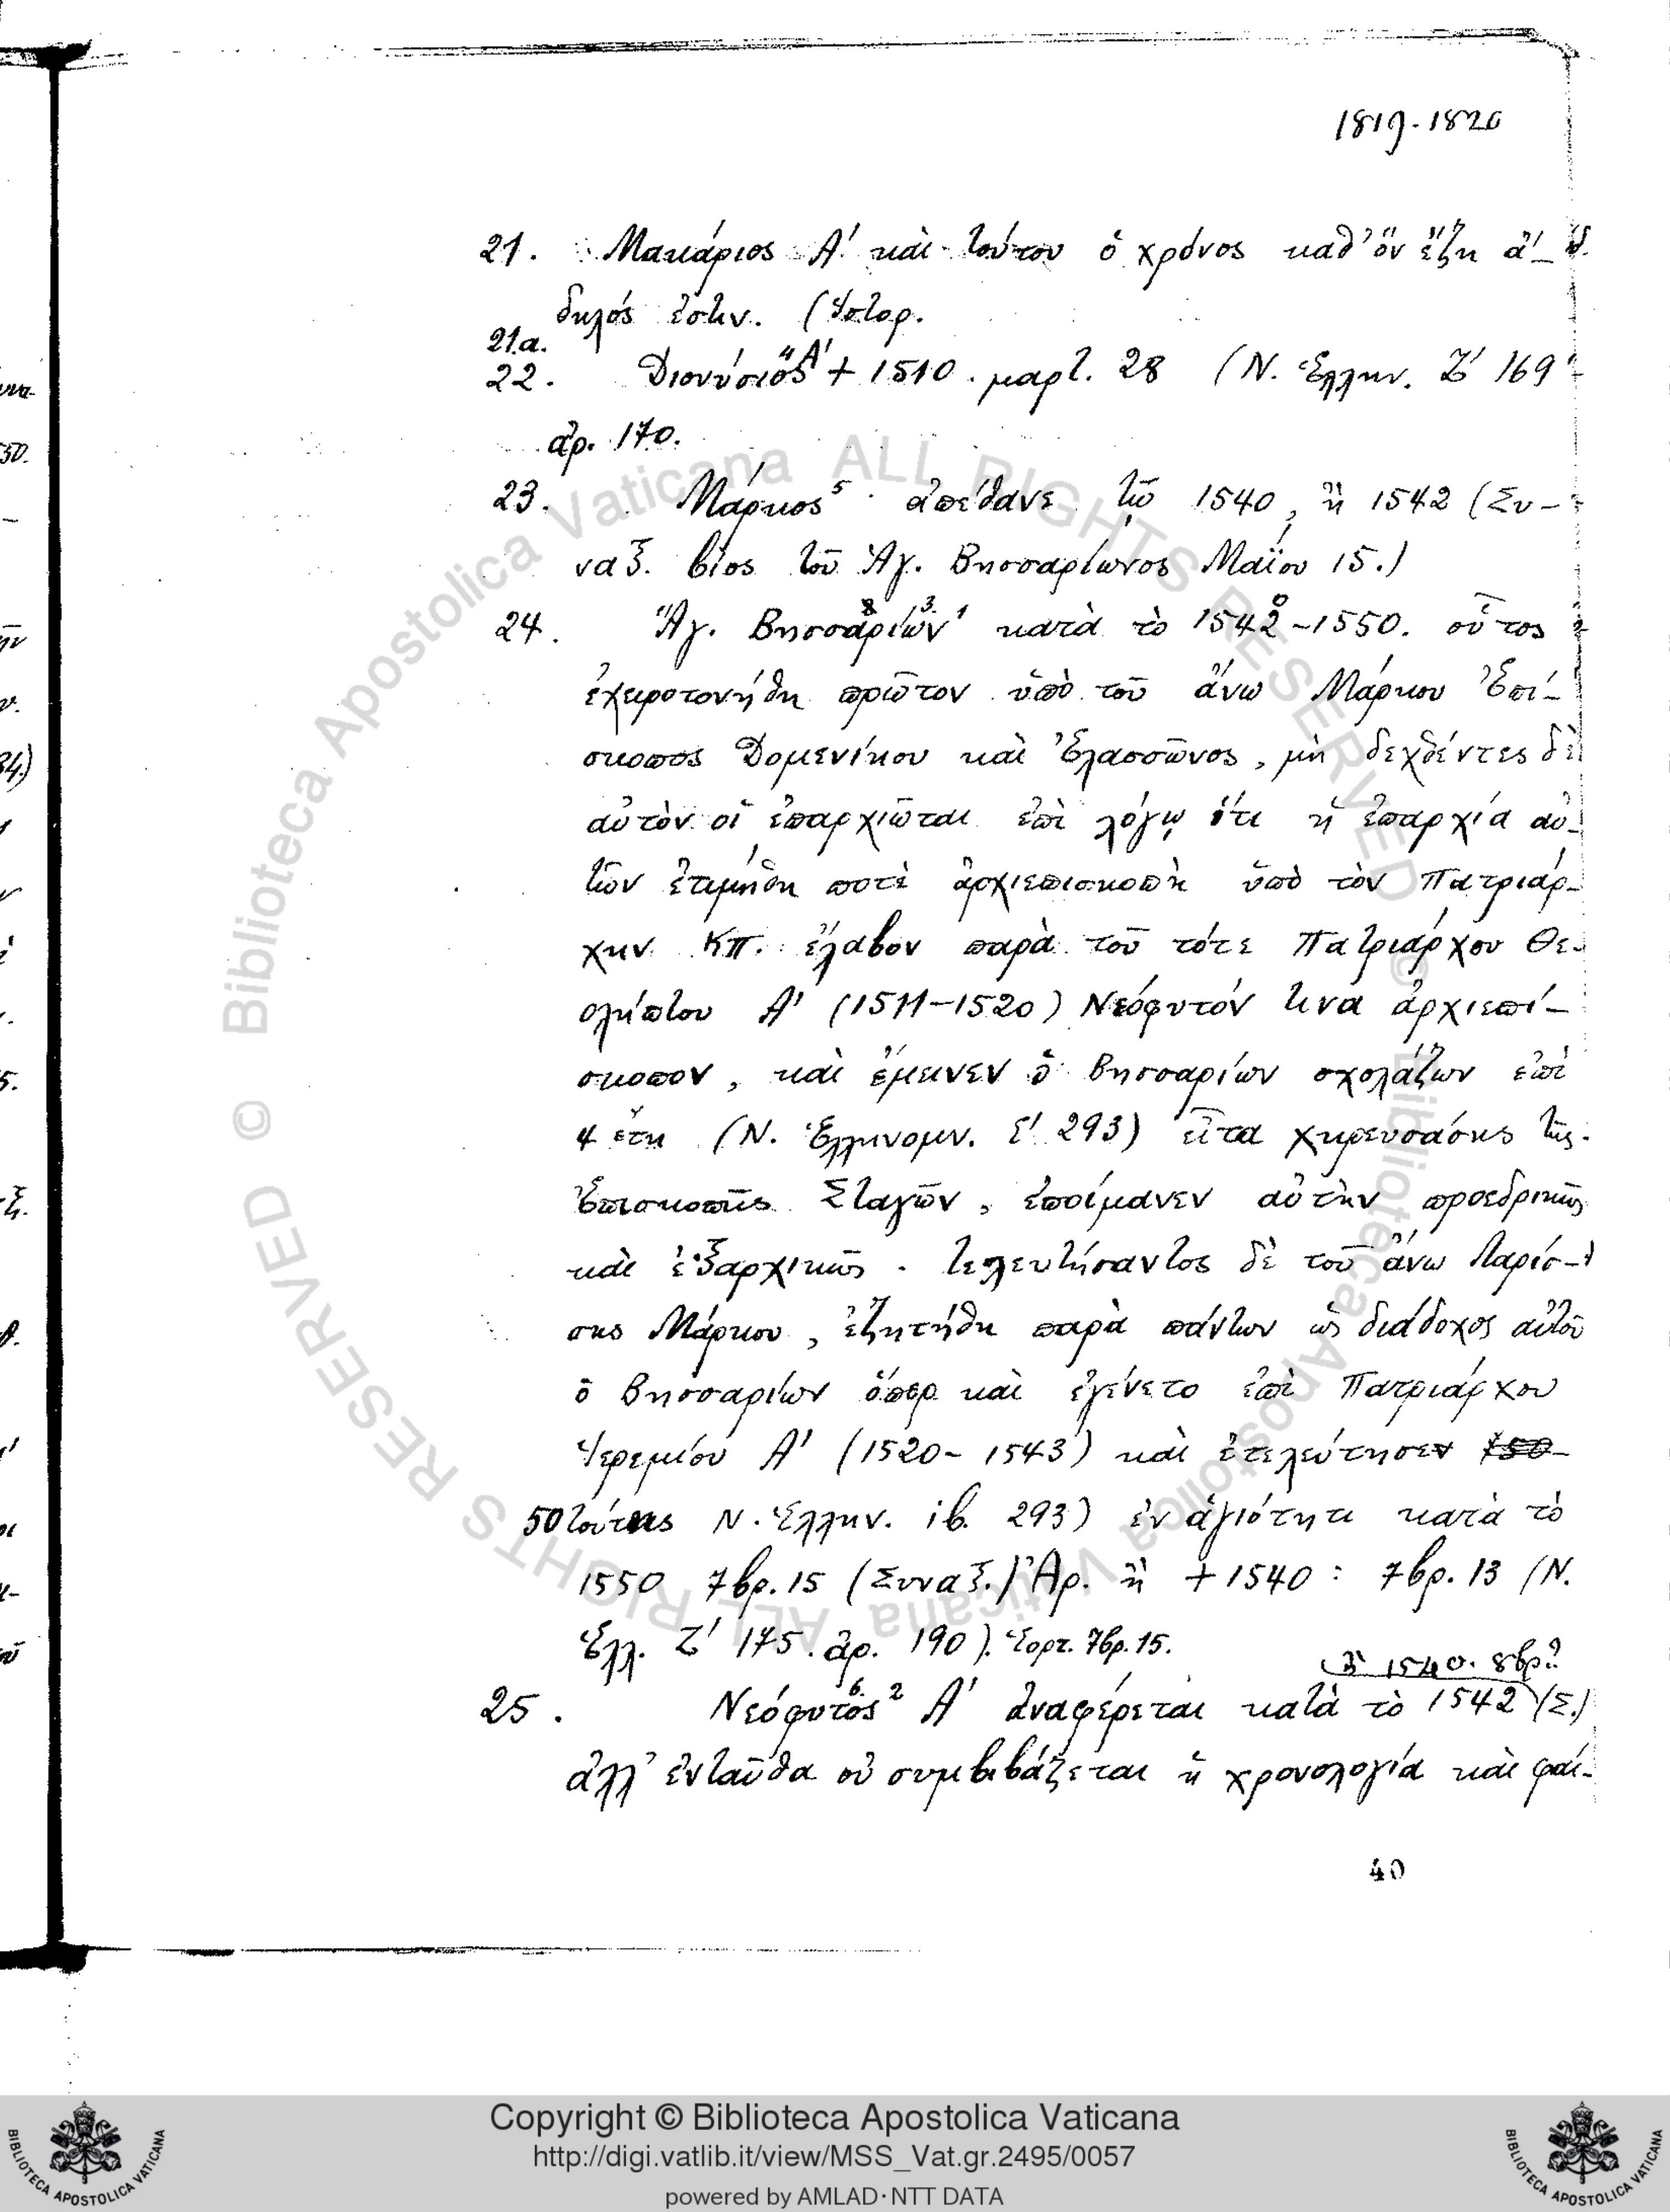 1819-1820
21. Μακάριος Α΄ καὶ τούτου ὁ χρόνος καθ᾽ ὃν ἔζη ἄ-
δηλός ἐστιν. (Ἱστορ.
21.α.
22. Διονύσιος 4 Α΄ + 1510. μαρτ. 28 (Ν. Ἑλλην. Ζ΄ 169
ἀρ. 170.
23. Μάρκος 5 ἀπέθανε τῷ 1540, ἢ 1542 (Συ-
ναξ. βίος τοῦ Ἁγ. Βησσαρίωνος Μαΐου 15.)
24. Ἅγ. Βησσαρίων 3. 1 κατὰ τὸ 1542-1550. οὗτος
ἐχειροτονήθη πρῶτον ὑπὸ τοῦ ἄνω Μάρκου Ἐπί-
σκοπος Δομενίκου καὶ Ἐλασσῶνος, μὴ δεχθέντες δὲ
αὐτὸν οἱ ἐπαρχιῶται ἐπὶ λόγῳ ὅτι ἡ ἐπαρχία αὐ-
τῶν ἐτιμήθη ποτὲ ἀρχιεπισκοπὴ ὑπὸ τὸν Πατριάρ-
χην ΚΠ. ἔλαβον παρὰ τοῦ τότε Πατριάρχου Θε-
ολήπτου Α΄ (1511-1520) Νεόφυτόν τινα ἀρχιεπί-
σκοπον, καὶ ἔμεινεν ὁ Βησσαρίων σχολάζων ἐπὶ
4 ἔτη (Ν. Ἑλληνομν. 293) εἶτα χηρευσάσης τῆς
Ἐπισκοπῆς Σταγῶν, ἐποίμανεν αὐτὴν προεδρικῶς
καὶ ἐξαρχικῶς. τελευτήσαντος δὲ τοῦ ἄνω Λαρίσ-
σης Μάρκου, ἐζητήθη παρὰ πάντων ὡς διάδοχος αὐτοῦ
ὁ Βησσαρίων ὅπερ καὶ ἐγένετο ἐπὶ Πατριάρχου
Ἱερεμίου Α΄ (1520-1543) καὶ ἐτελεύτησεν 50-
50τούτης Ν. Ἑλλην. ib. 293) ἐν ἁγιότητι κατὰ τὸ
1550 7βρ. 15 (Συναξ.) Ἀρ. ἢ + 1540: 7βρ. 13 (Ν.
Ἑλλ. Ζ΄ 175. ἀρ. 190). Ἑορτ. 7βρ. 15.
1540. 8βρ?
25. Νεόφυτος 6. 2 Α΄ ἀναφέρεται κατὰ τὸ 1542 (Σ.)
ἀλλ᾽ ἐνταῦθα οὐ συμβιβάζεται ἡ χρονολογία καὶ φαί-
40
© Biblioteca Apostolica Vaticana ALL RIGHTS RESERVED © Biblioteca Apostolica Vaticana ALL RIGHTS RESERVED
Copyright © Biblioteca Apostolica Vaticana
http://digi.vatlib.it/view/MSS_Vat.gr.2495/0057
powered by AMLAD·NTT DATA
BIBLIOTECA APOSTOLICA VATICANA
BIBLIOTECA APOSTOLICA VATICANA